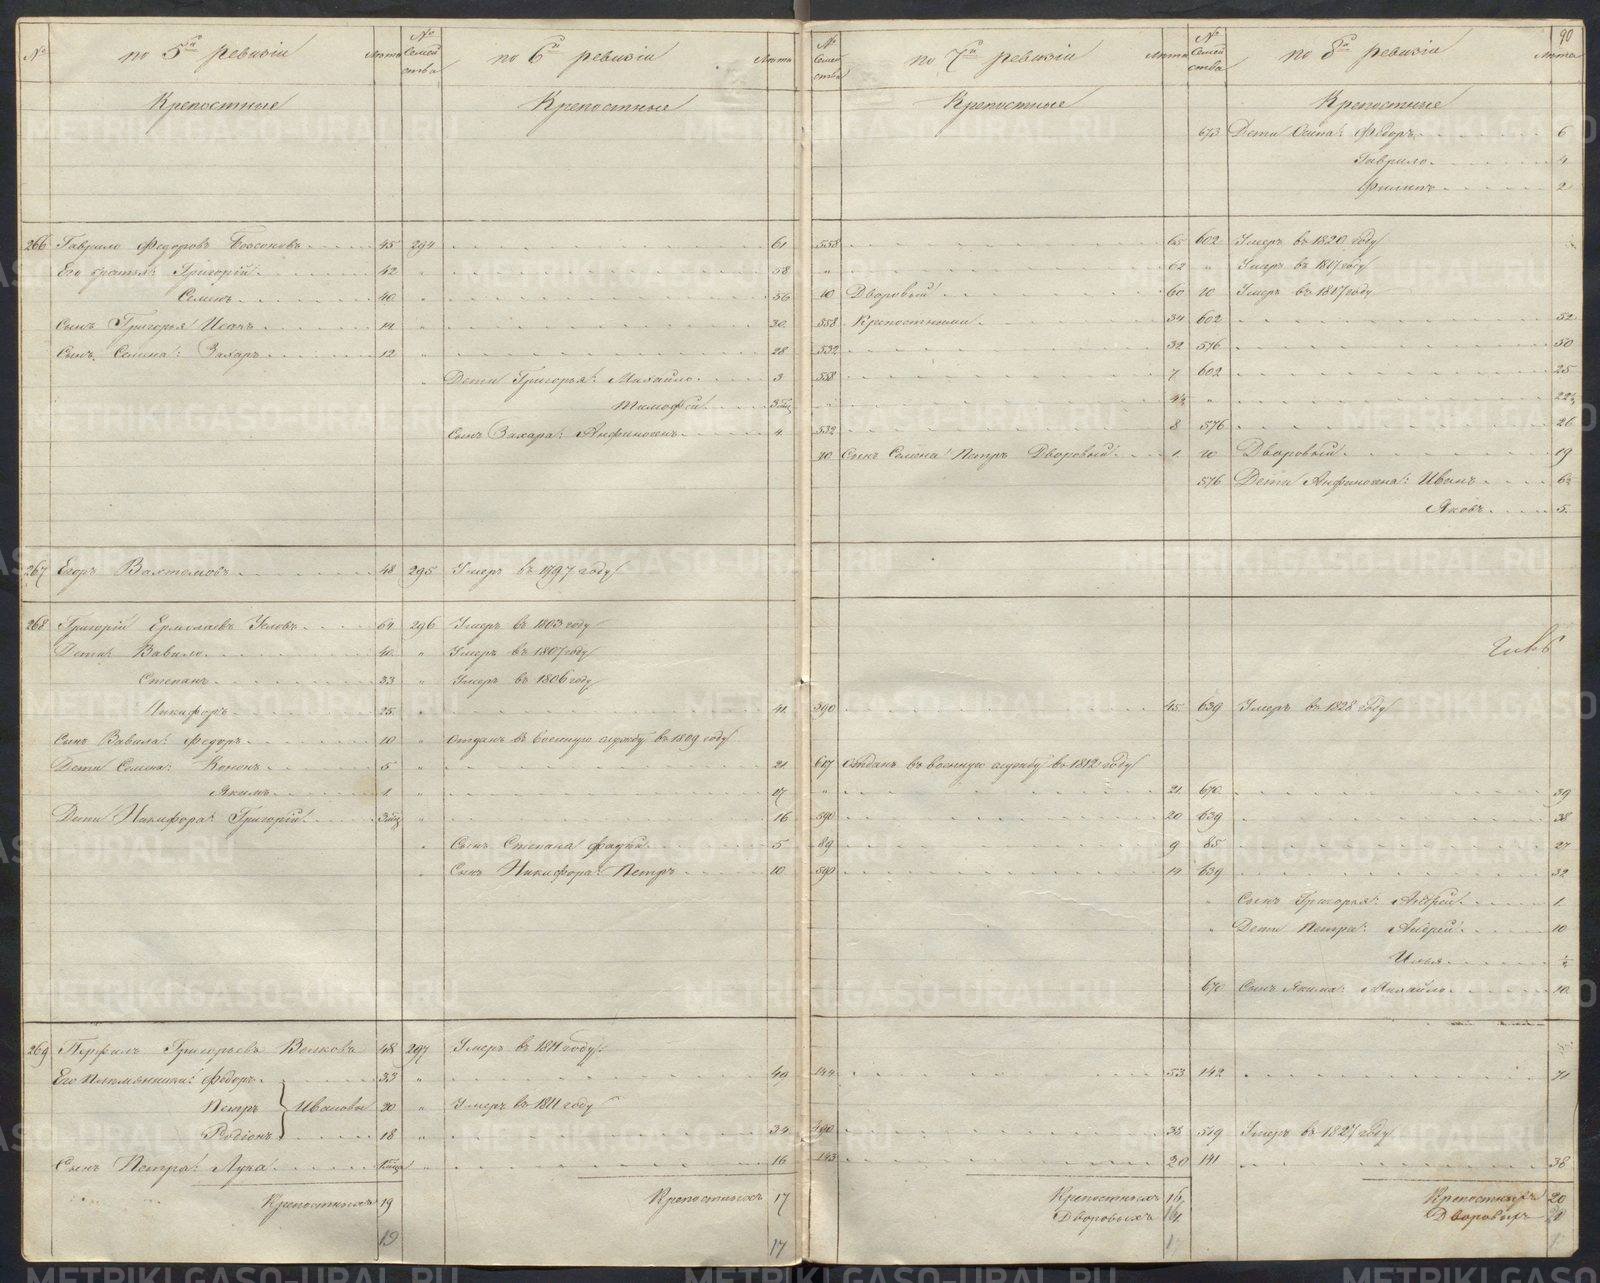 № по 5й ревизіи Лѣта № Семей ства по 6й ревизіи Лѣта
Крепостные Крепостные
266 Гаврило Федоровъ 45 294 61
Его братья: Григорій 42 " 58
Семенъ 40 " 56
Сынъ Григорья: Исакъ 14 " 30
Сынъ Семена: Захаръ 12 " 28
" Дети Григорья: Михайло 3
Тимофей
Сынъ Захара: Анфиногенъ 4
267 Егоръ Вахтомовъ 48 295 Умеръ въ 1797 году
268 Григорій Ермолаевъ Условъ 64 296 Умеръ въ 1803 году
Дети: Вавило 40 " Умеръ въ 1807 году
Степанъ 33 " Умеръ въ 1806 году
Никифоръ 25 " 41
Сынъ Вавила: Федоръ 10 " Отданъ въ военную службу въ 1809 году
Дети Семена: Кононъ 5 " 21
Якимъ 1 " 17
Дети Никифора: Григорій " 16
" Сынъ Степана: Фадей 5
" Сынъ Никифора: Петръ 10
269 Перфилъ Григорьевъ Волковъ 48 297 Умеръ въ 1811 году
Его Племянники: Федоръ 33 " 49
Петръ Ивановы 20 " Умеръ въ 1811 году
Родіонъ 18 " 34
Сынъ Петра: Лука " 16
Крепостныхъ 19 Крепостныхъ 17
19 17
90
№ Семей ства по 7й ревизіи Лѣта № Семей ства по 8й ревизіи Лѣта
Крепостные Крепостные
673 Дети Осипа: Федоръ 6
Гаврило 4
Филипъ 2
558 65 602 Умеръ въ 1820 году
" 62 " Умеръ въ 1817 году
10 Дворовый 60 10 Умеръ въ 1817 году
558 Крепостными 34 602 52
532 32 576 50
558 7 602 25
" 4½ " 22½
532 8 576 26
10 Сынъ Семена: Петръ Дворовый 1 10 Дворовый 19
576 Дети Анфиногена: Иванъ
Яковъ 5
590 45 639 Умеръ въ 1828 году
617 Отданъ въ военную службу въ 1812 году
" 21 670 39
590 20 639 38
89 9 85 27
590 14 639 32
" Сынъ Григорья: Андрей 1
" Дети Петра: Андрей 10
Илья
670 Сынъ Якима: Михайло 10
144 53 142 71
38 519 Умеръ въ 1827 году
143 20 141 38
Крепостныхъ 16 Крепостныхъ 20
Дворовыхъ 1 Дворовыхъ
METRIKI.GASO-URAL.RU